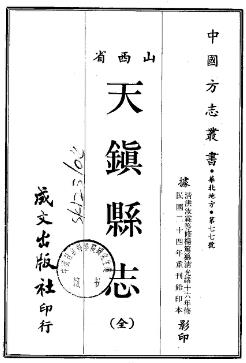 中國方志叢書・華北地方・第七七號
據清洪汝霖等修楊篤纂清光緒十六年修
民國二十四年重刊鉛印本 影印
山西省
天鎮縣志
(全)
成文出版社印行